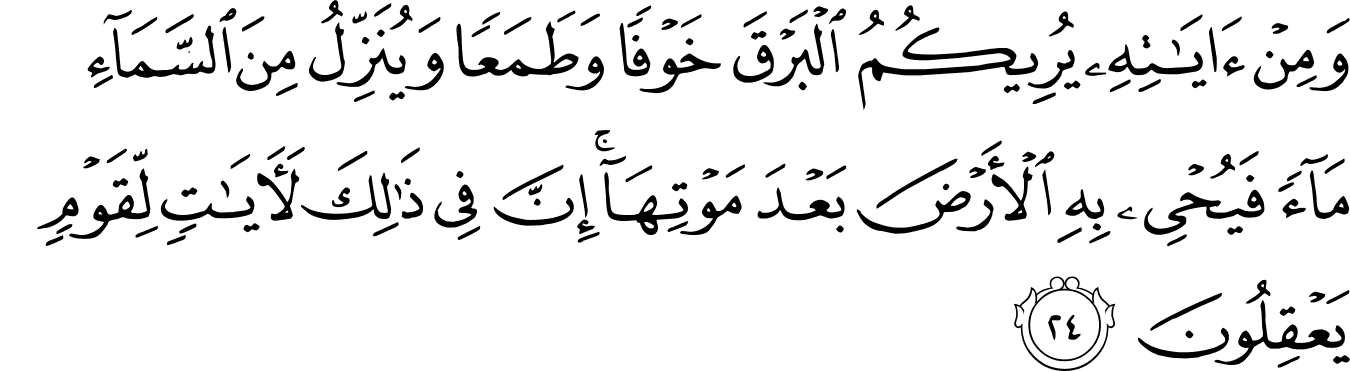 وَمِنْ ءَايَـٰتِهِۦ يُرِيكُمُ ٱلْبَرْقَ خَوْفًا وَطَمَعًا وَيُنَزِّلُ مِنَ ٱلسَّمَآءِ
مَآءً فَيُحْىِۦ بِهِ ٱلْأَرْضَ بَعْدَ مَوْتِهَآ ۚ إِنَّ فِى ذَٰلِكَ لَـَٔايَـٰتٍ لِّقَوْمٍ
يَعْقِلُونَ ٢٤